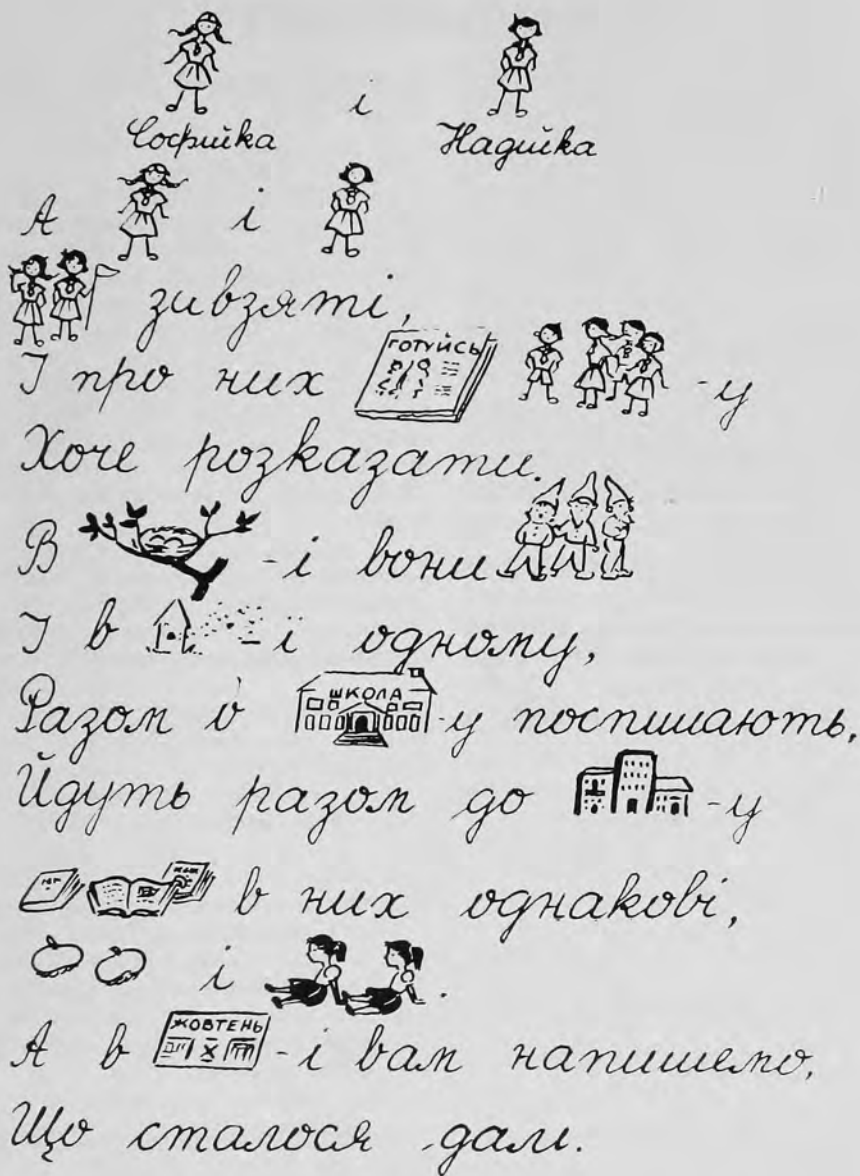 і
Софійка Надійка
А і
завзяті,
І про них ГОТУЙСЬ -у
Хоче розказати.
В -і вони
І в -і одному,
Разом в ШКОЛА -у поспішають,
Йдуть разом до -у
в них однакові,
і .
А в ЖОВТЕНЬ -і вам напишемо,
Що сталося далі.